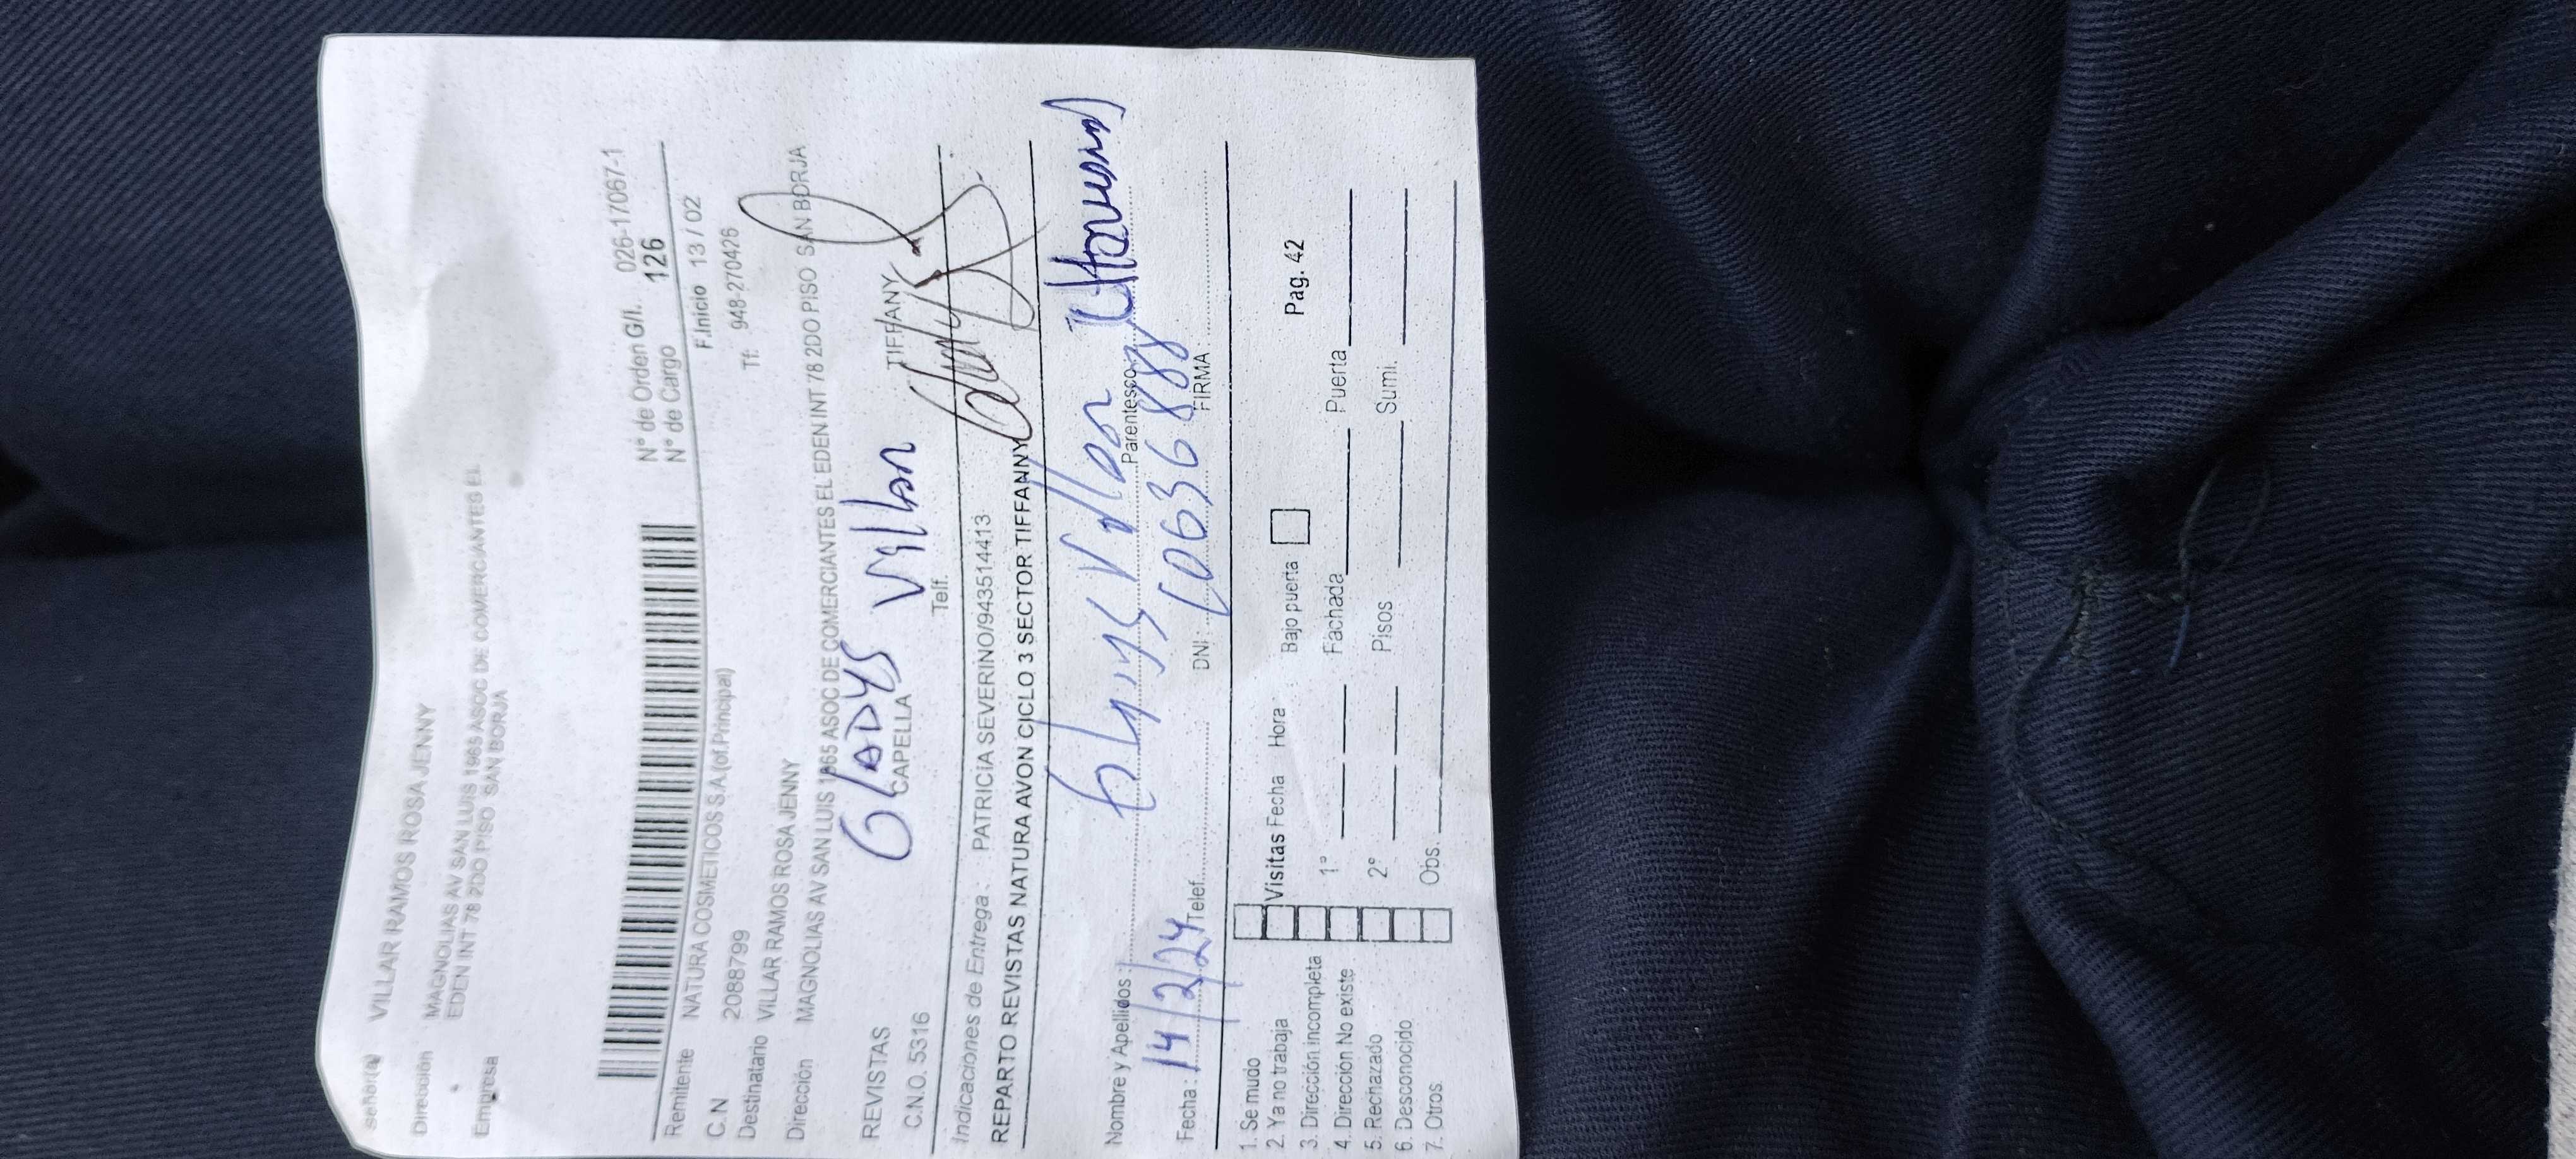 Señor(a) VILLAR RAMOS ROSA JENNY
Dirección MAGNOLIAS AV SAN LUIS 1965 ASOC DE COMERCIANTES EL
EDEN INT 78 2DO PISO SAN BORJA
Empresa
N° de Orden G/I. 026-17067-1
N° de Cargo 126
Remitente NATURA COSMETICOS S.A.(of.Principal) F.Inicio 13 / 02
C.N 2088799 Tf: 948-270426
Destinatario VILLAR RAMOS ROSA JENNY
Dirección MAGNOLIAS AV SAN LUIS 1965 ASOC DE COMERCIANTES EL EDEN INT 78 2DO PISO SAN BORJA
GLADYS Villar
REVISTAS CAPELLA TIFFANY
C.N.O. 5316 Telf.
Indicaciones de Entrega : PATRICIA SEVERINO/943514413
REPARTO REVISTAS NATURA AVON CICLO 3 SECTOR TIFFANNY
Nombre y Apellidos : Gladys Villar Parentesco (Hermana)
Fecha : 14/2/24 Telef. DNI : 
FIRMA
1. Se mudo
2. Ya no trabaja Visitas Fecha Hora Bajo puerta Pag. 42
3. Dirección incompleta
4. Dirección No existe 1° Fachada Puerta
5. Rechazado
6. Desconocido 2° Pisos Sumi.
7. Otros Obs.